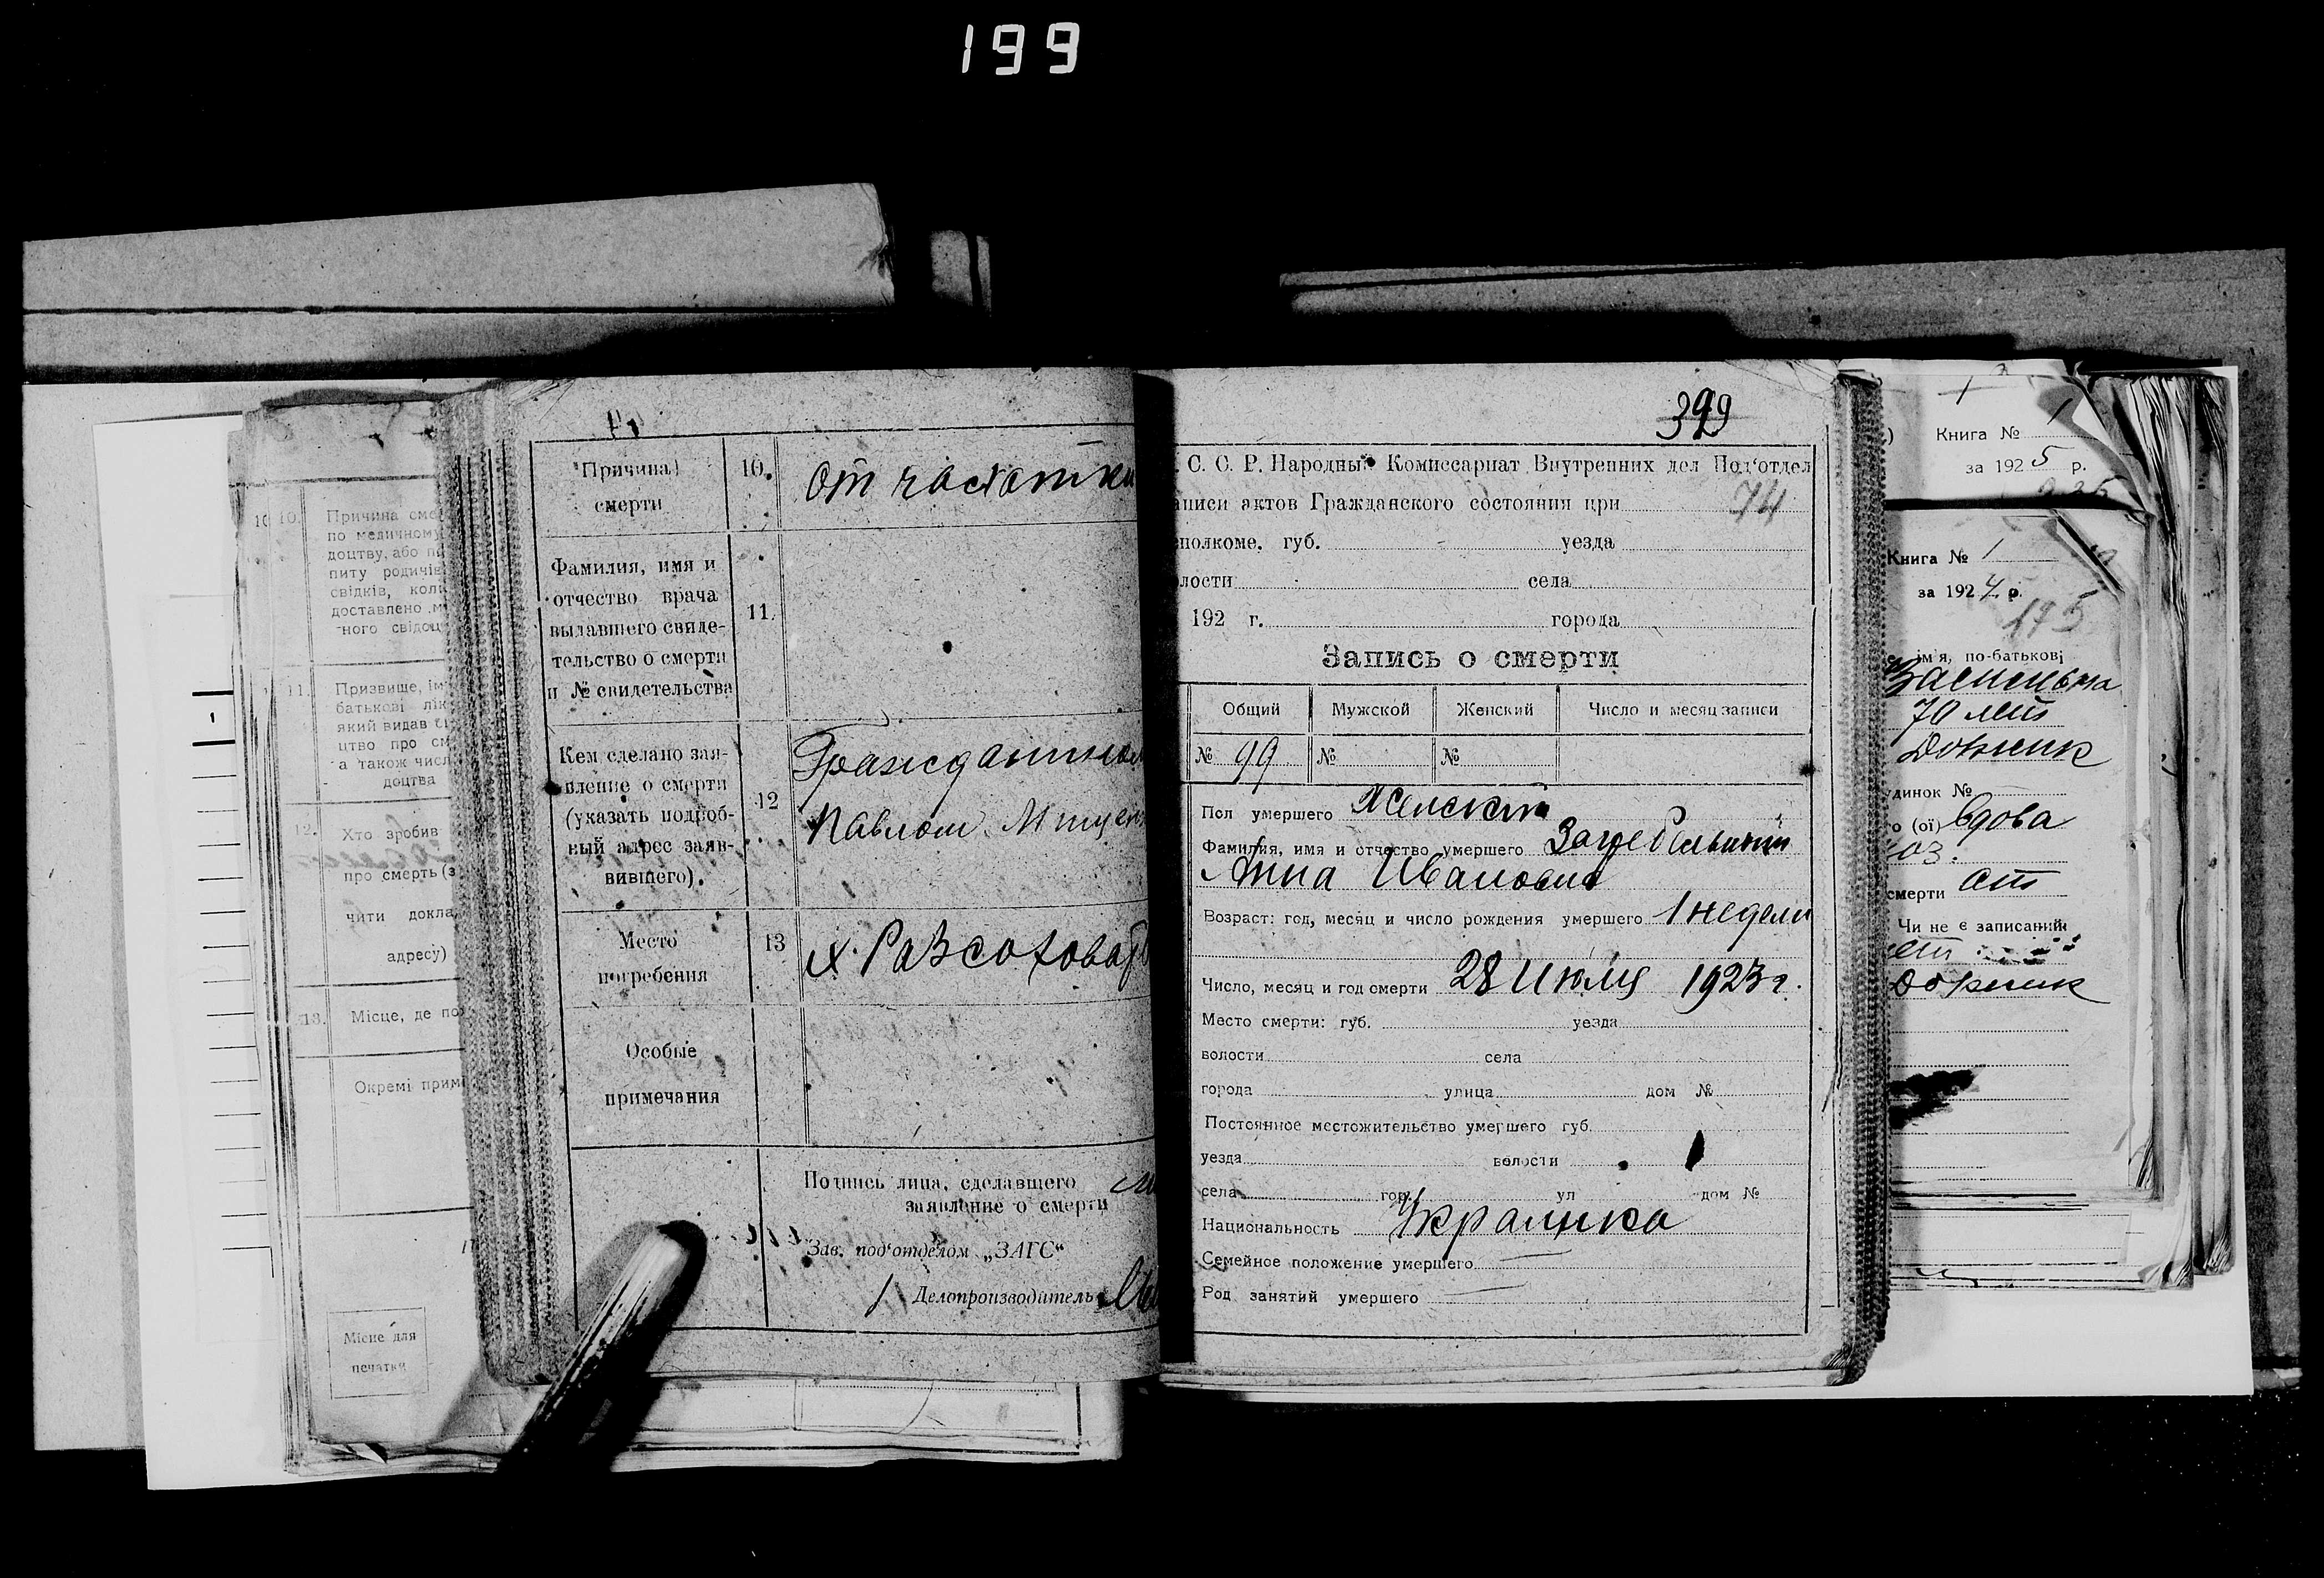 199
Причина
смерти
10.
От чахотки
Фамилия, имя и
отчество врача
выдавшего свиде-
тельство о смерти
и № свидетельства
11.
Кем сделано зая-
вление о смерти
(указать подроб-
ный адрес заяв-
вившего).
12
Гражданином
Павлом
Место
погребения
13
х.
Особые
примечания
Подпись лица, сделавшего
заявление о смерти
Зав. под‘отделом „ЗАГС“
Делопроизводитель
10.
Причина сме
по медичному
доцтву, або
питу родичів
свідків, кол
доставлено м
ного свідоц
11.
Призвище, ім
батькові лік
який видав
цтво про см
а також числ
доцтва
12.
Хто зробив
про смерть (з
чити докла
адресу)
13.
Місце, де по
Окремі прим
Місце для
печатки
399
С. С. Р. Народный Комиссариат Внутренних дел Под‘отдел
аписи актов Гражданского состояния при
74
сполкоме, губ. уезда
лости села
192 г. города
Запись о смерти
Общий Мужской Женский Число и месяц записи
№ 99 № №
Пол умершего Женский
Фамилия, имя и отчество умершего
Анна Ивановна
Возраст: год, месяц и число рождения умершего 1 недели
Число, месяц и год смерти 28 Июля 1923 г.
Место смерти: губ. уезда
волости села
города улица дом №
Постоянное местожительство умершего губ.
уезда волости
села гор. ул дом №
Национальность Украинка
Семейное положение умершего —
Род занятий умершего —
Книга № 1
за 1925 р.
Книга № 1
за 1924 р.
195
ім'я, по-батькові
70 лет
динок №
о (ої) вдова
смерти
Чи не є записаний